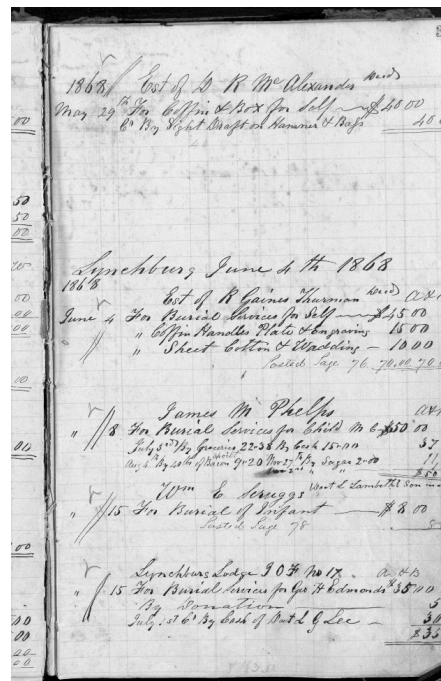 1868 Est of D R McAlexander Decd
May 29th For Coffin & Box for Self $40 00
Cr By Sight Draft on Hammer & Bags 40
Lynchburg June 4th 1868
1868
Est of R Gaines Thurman Decd
June 4 For Burial Services for Self $45 00
" Coffin Handles Plate & Engraving 15 00
" Sheet Cotton & Wadding 10 00
Posted Page 76 70.00 70
James M Phelps
8 For Burial Services for Child M C $50 00
July 3rd By Groceries 22-38 By Cash 15-00 37
Aug 6th By 40 lbs of Bacon 9-20 Nov 27th By Sugar 2-00 11
$50
Wm C Scruggs
" 15 For Burial of Infant $8 00
Posted Page 78 8
Lynchburg Lodge I O F No 17
" 15 For Burial Services for Geo H Edmonds $35 00
By Donation 5
July 1st Cr By Cash of L G Lee 30
$35